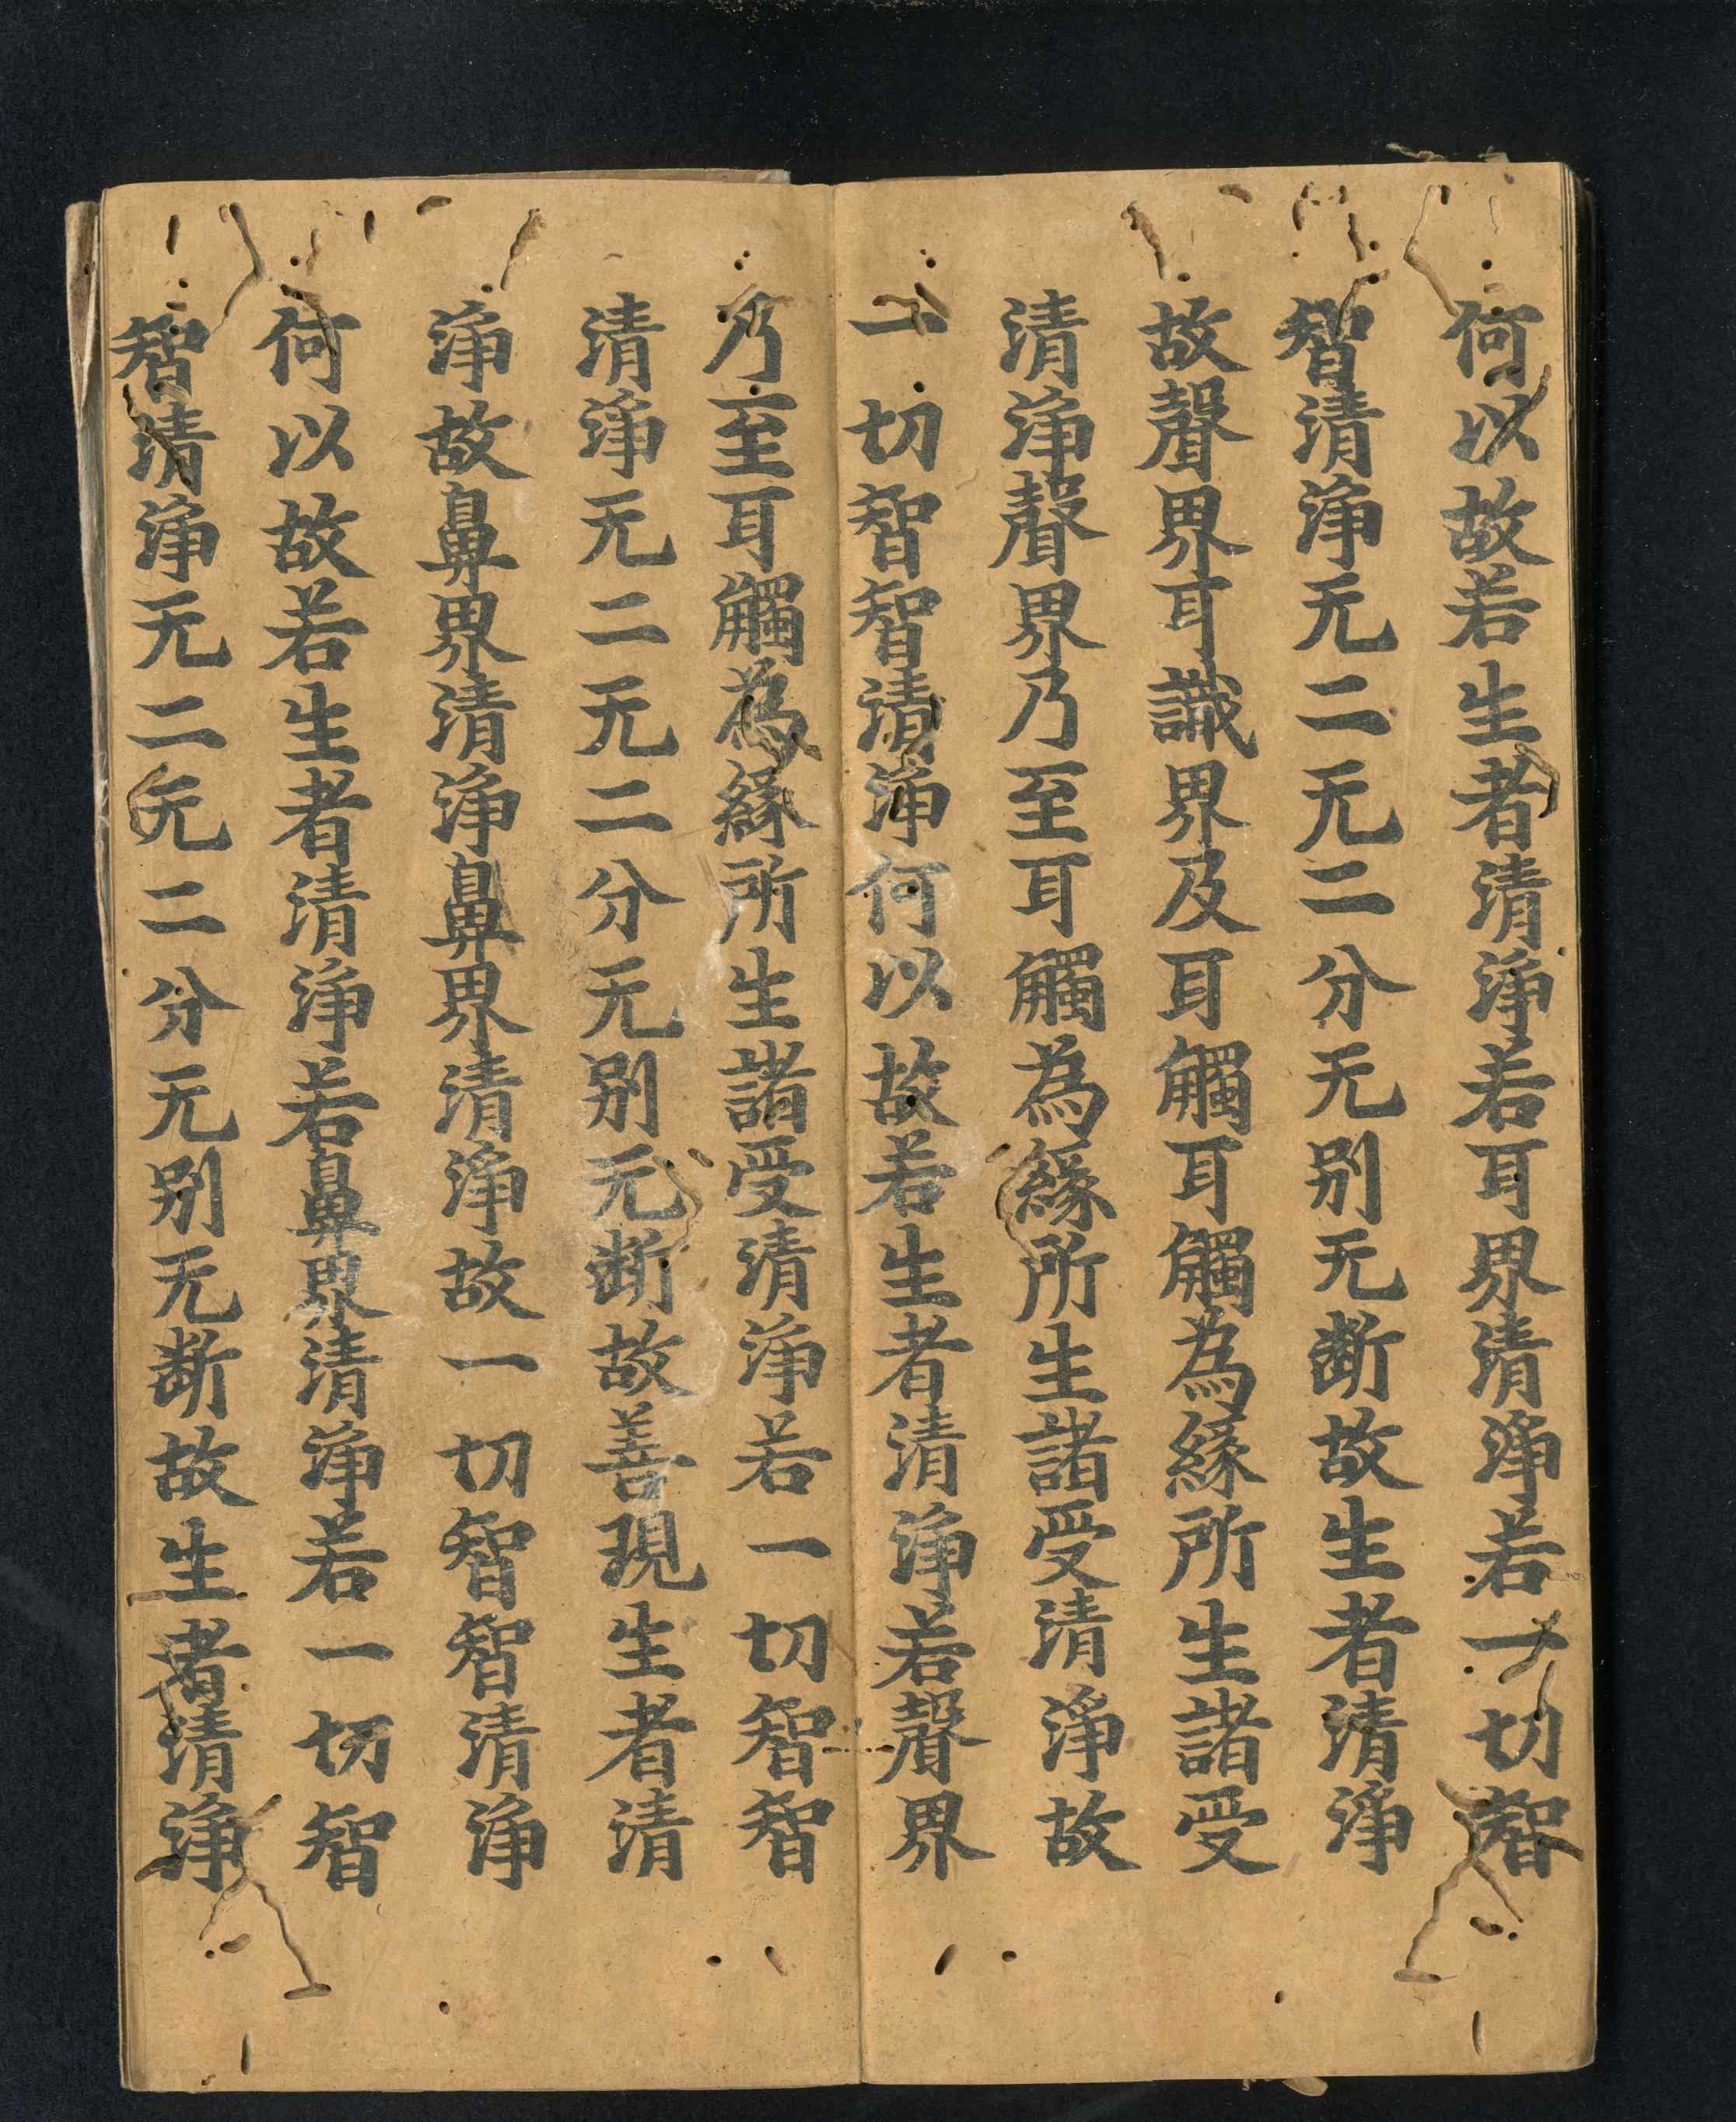 何以故若生者清淨若耳界清淨若一切智
智清淨无二无二分无别无断故生者清淨
故聲界耳識界及耳觸耳觸為緣所生諸受
清淨聲界乃至耳觸為緣所生諸受清淨故
一切智智清淨何以故若生者清淨若聲界
乃至耳觸為緣所生諸受清淨若一切智智
清淨无二无二分无别无断故善現生者清
淨故鼻界清淨鼻界清淨故一切智智清淨
何以故若生者清淨若鼻界清淨若一切智
智清淨无二无二分无别无断故生者清淨